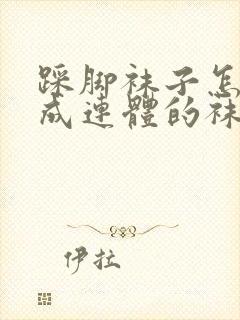 踩脚袜子怎
成連體的袜
伊拉